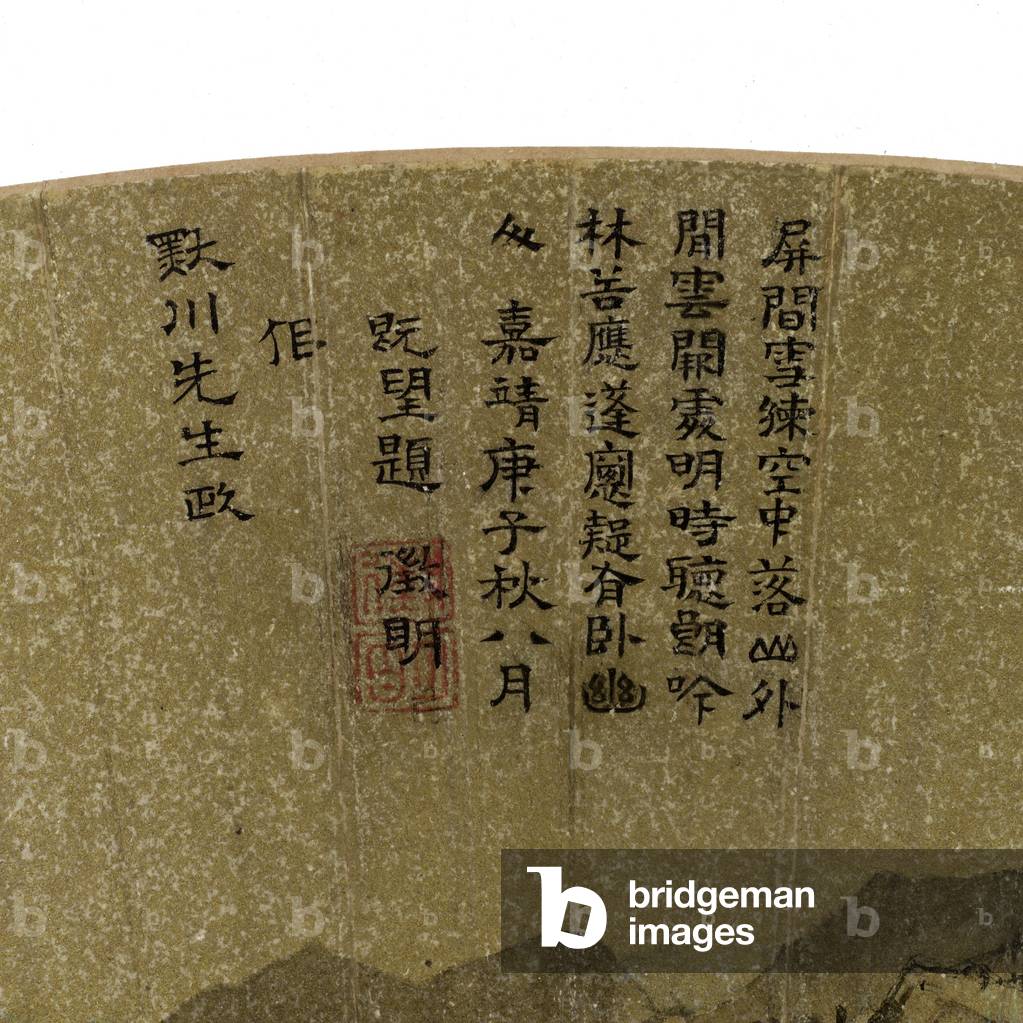 屏間雪練空中落山外
閒雲開處明時聽朗吟
林谷應蓬窻疑有卧幽
人 嘉靖庚子秋八月
既望題 徵明
佀
默川先生政
bridgeman
images